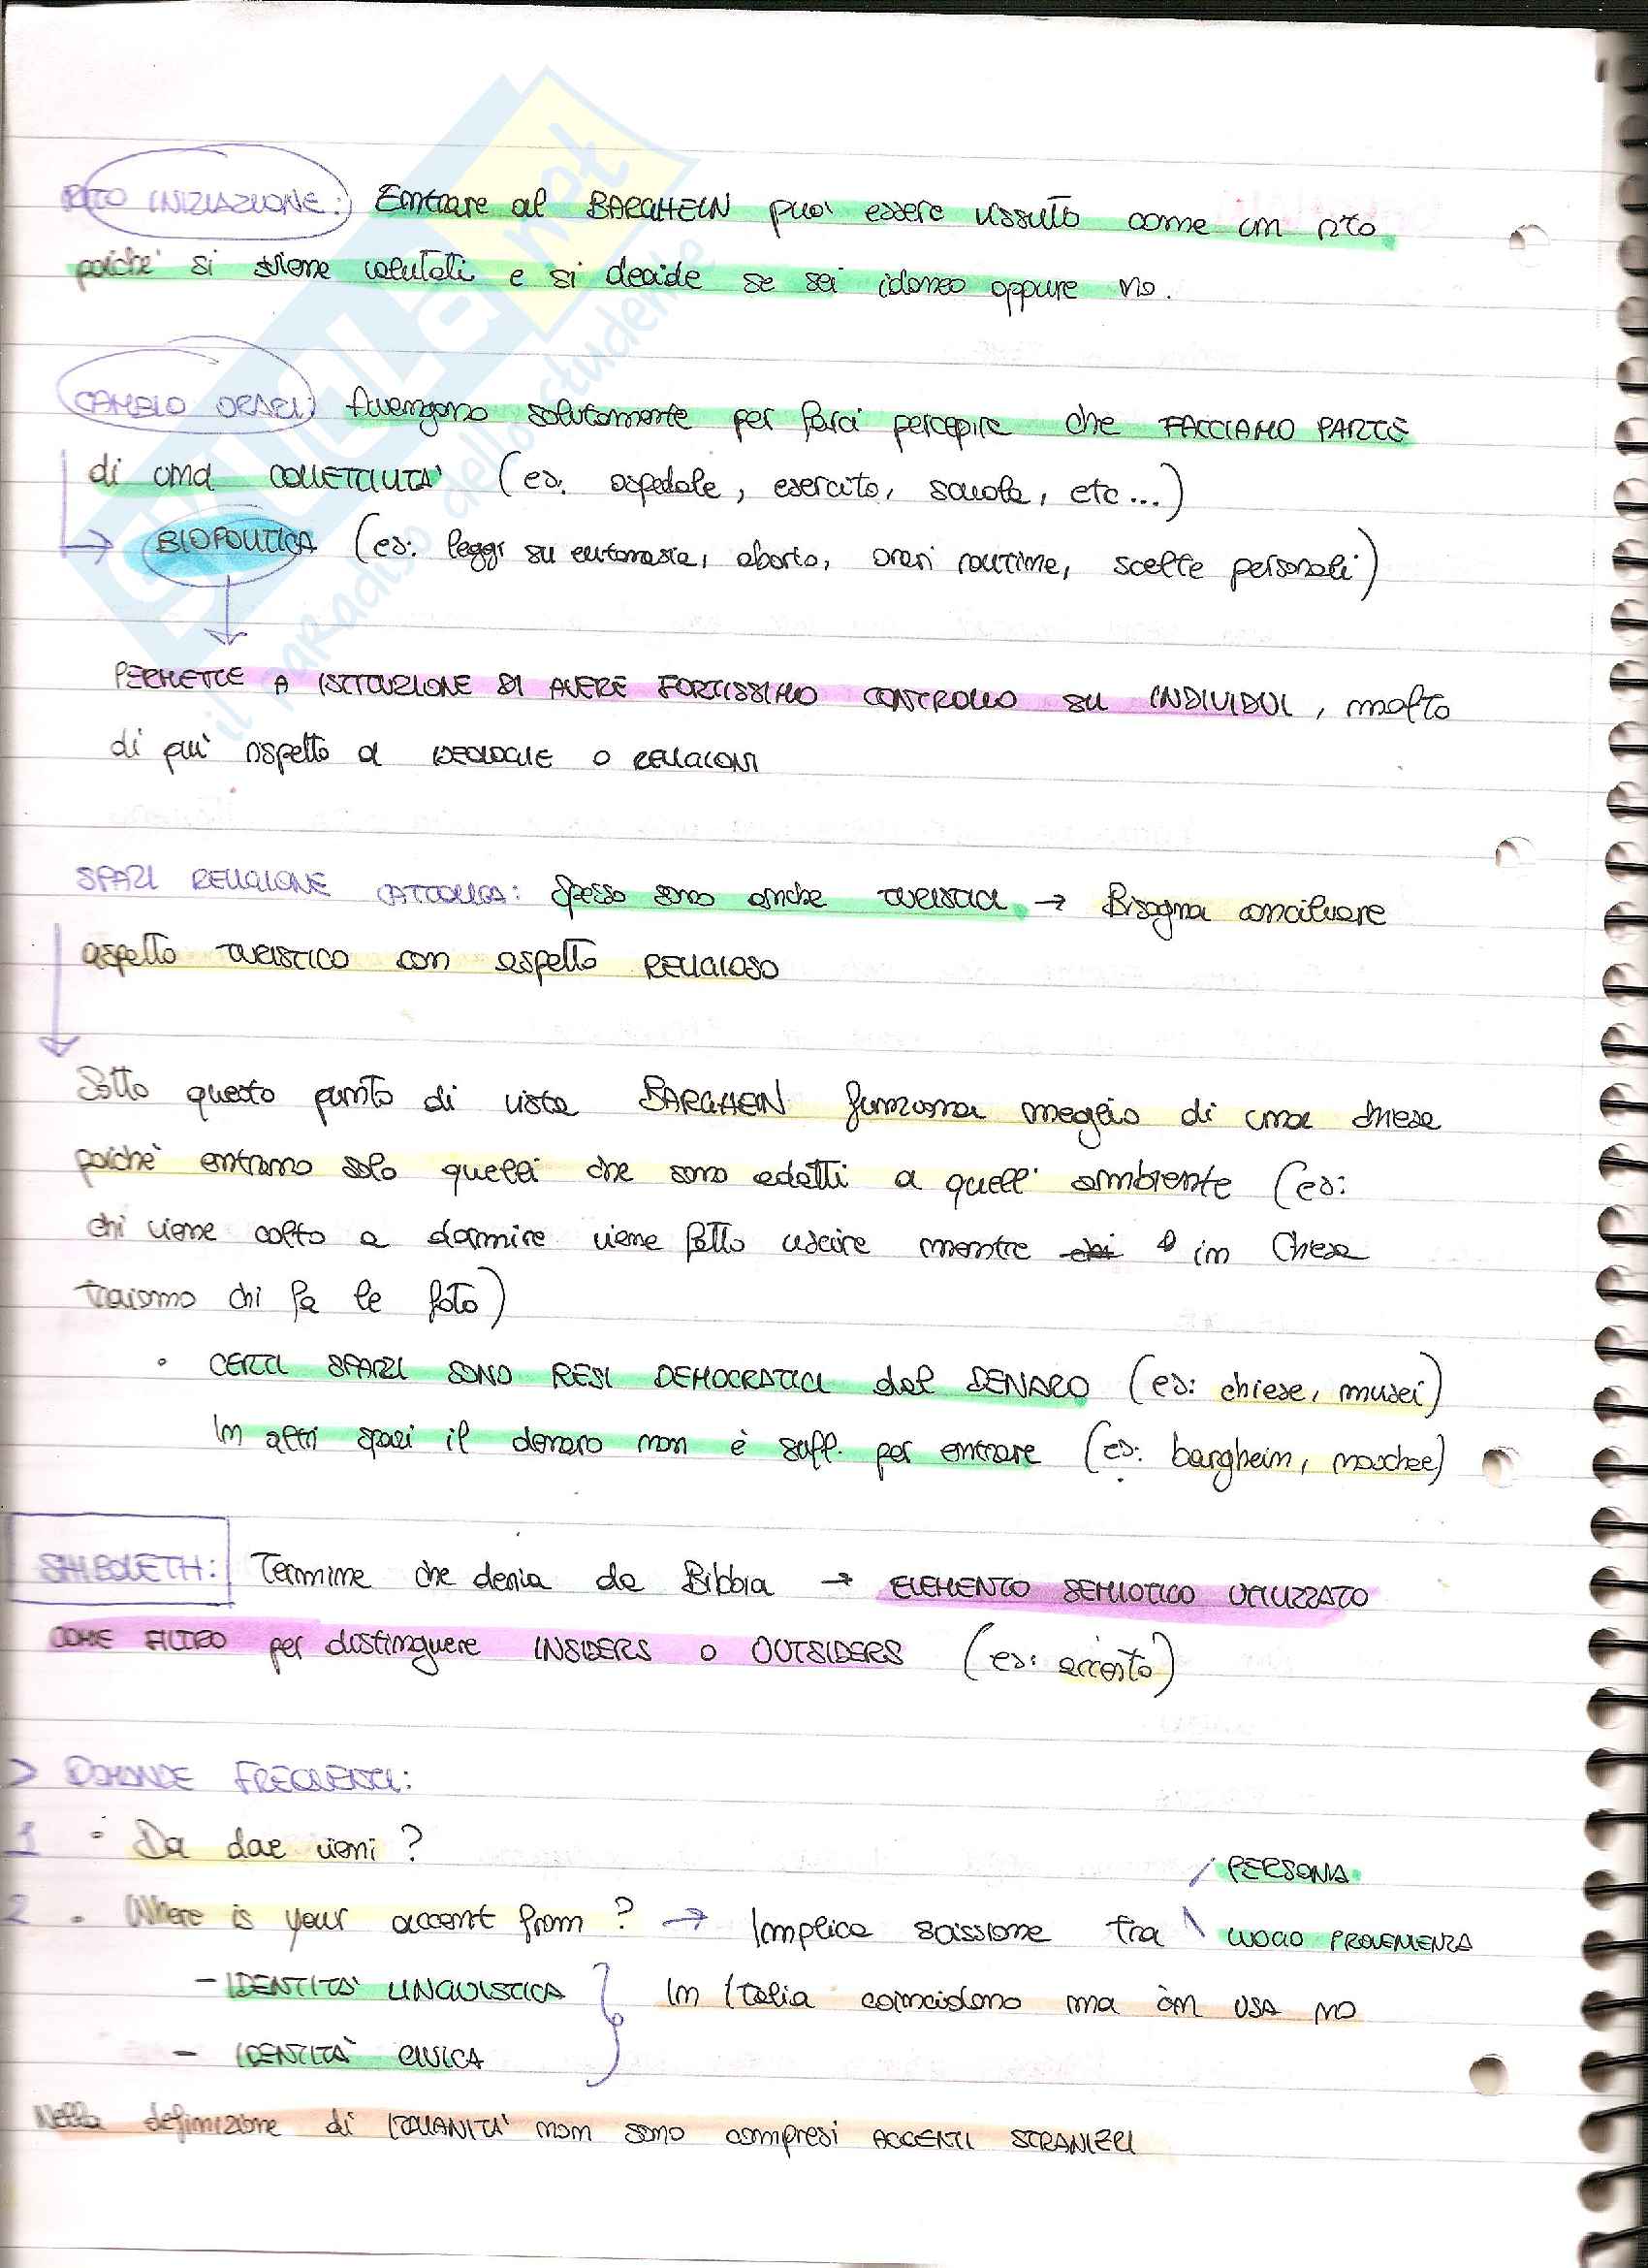 RITO INIZIAZIONE: Entrare al BARGHEIN può essere vissuto come un rito
poichè si viene valutati e si decide se sei idoneo oppure no.
CAMBIO ORARI) Avvengono solitamente per farci percepire che FACCIAMO PARTE
di una COLLETTIVITA' (es. ospedale, esercito, scuola, etc...)
BIOPOLITICA (es: leggi su eutanasia, aborto, orari routine, scelte personali)
PERMETTE A ISTITUZIONE DI AVERE FORTISSIMO CONTROLLO SU INDIVIDUI, molto
di più rispetto a IDEOLOGIE O RELIGIONI
SPAZI RELIGIONE CATTOLICA: Spesso sono anche TURISTICI → Bisogna conciliare
aspetto TURISTICO con aspetto RELIGIOSO
Sotto questo punto di vista BARGHEIN funziona meglio di una chiesa
poichè entrano solo quelli che sono adatti a quell'ambiente (es:
chi viene colto a dormire viene fatto uscire mentre chi in Chiesa
troviamo chi fa le foto)
• CERTI SPAZI SONO RESI DEMOCRATICI dal DENARO (es: chiese, musei)
In altri spazi il denaro non è suff. per entrare (es: barghein, moschee)
SHIBOLETH: Termine che deriva da Bibbia → ELEMENTO SEMIOTICO UTILIZZATO
COME FILTRO per distinguere INSIDERS o OUTSIDERS (es: accento)
> DOMANDE FREQUENTI:
1 • Da dove vieni?
PERSONA
2 • Where is your accent from? → Implica scissione tra LUOGO PROVENIENZA
- IDENTITA' LINGUISTICA In Italia coincidono ma in USA NO
- IDENTITÀ CIVICA
Nella definizione di ITALIANITA' non sono compresi ACCENTI STRANIERI
SKUOLA.net
il paradiso dello studente